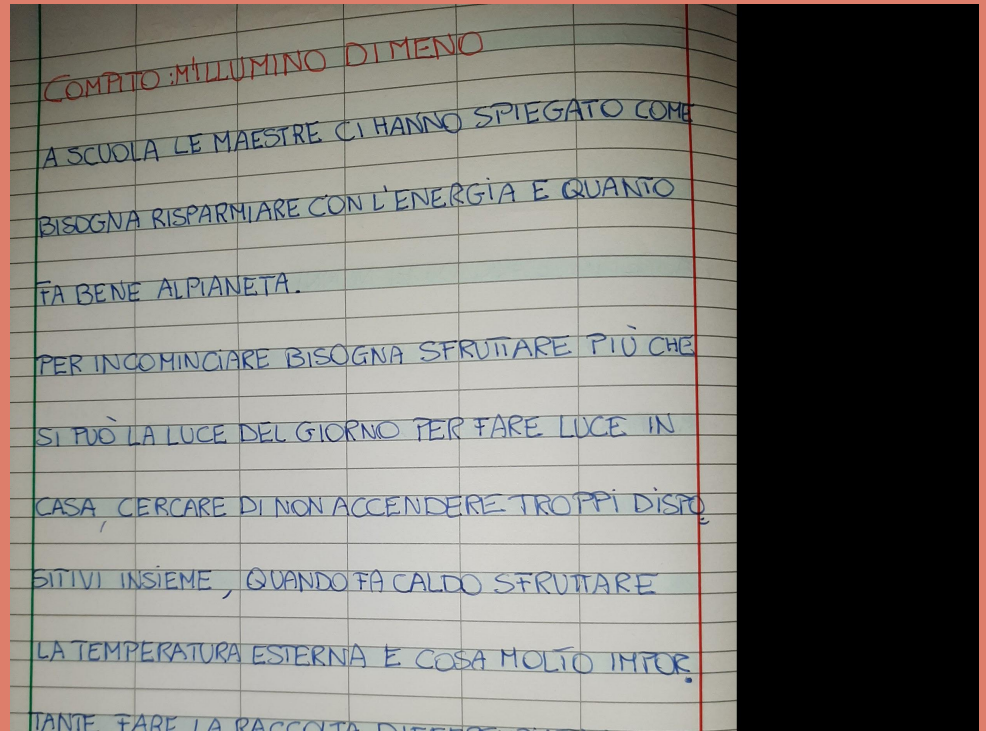 COMPITO: M'ILLUMINO DI MENO
A SCUOLA LE MAESTRE CI HANNO SPIEGATO COME
BISOGNA RISPARMIARE CON L'ENERGIA E QUANTO
FA BENE AL PIANETA.
PER INCOMINCIARE BISOGNA SFRUTTARE PIÙ CHE
SI PUÒ LA LUCE DEL GIORNO PER FARE LUCE IN
CASA, CERCARE DI NON ACCENDERE TROPPI DISPO
SITIVI INSIEME, QUANDO FA CALDO SFRUTTARE
LA TEMPERATURA ESTERNA E COSA MOLTO IMPOR
TANTE FARE LA RACCOLTA